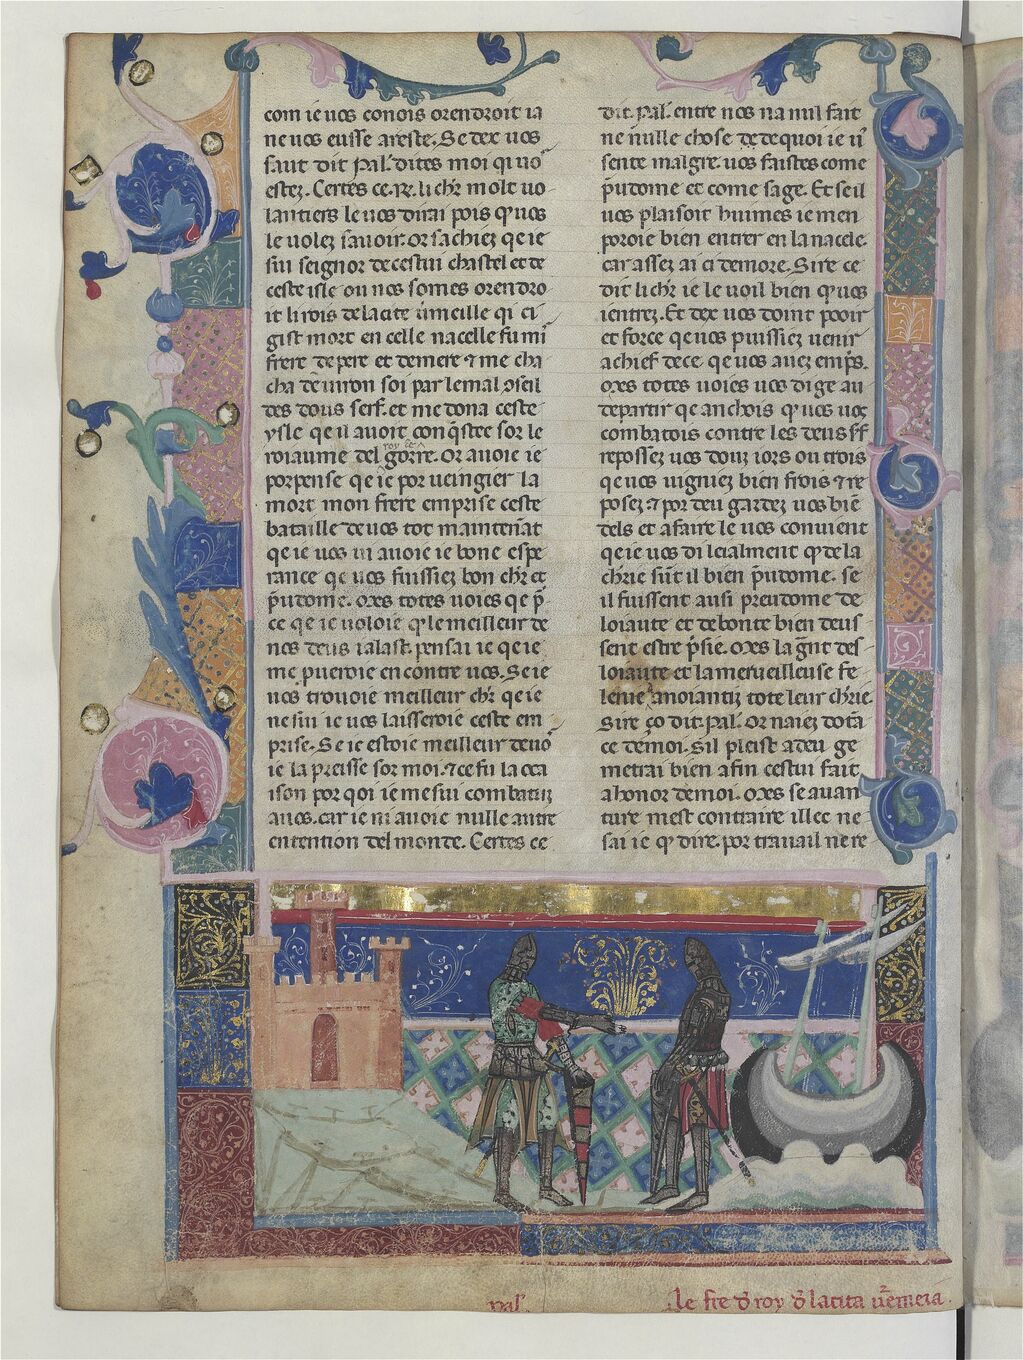 com ie uos conois orendroit ia
ne uos eusse areste. Se dex uos
saut dit pal'. dites moi q̇ uo᷒
estez. Certes ce .R. li chr̄ molt uo
lantiers le uos dirai pois q̇ uos
le uolez sauoir. or sachiez qe ie
sui seignor de cestui chastel et de
ceste isle ou nos somes orendro
it li rois de la cite uermeille qi ci
gist mort en celle nacelle fu mi
frere de pere et de mere ⁊ me cha
cha denuiron soi par le mal ꝯseil
des dous serf. et me dona ceste
ysle qe il auoit conq̇stee sor le
roiaume del gorre. Or auoie ie
porpense qe ie por uengier la
mort mon frere emprise ceste
bataille de uos tot maintenāt
qe ie uos ui auoie ie bone espe
rance qe uos fuissiez bon chr̄ et
p̄udome. Mes totes uoies qe p̄
ce qe ie uoloie q̇ le meilleur de
nos deus i alast. pensai ie qe ie
me pueroie encontre uos. Se ie
uos trouoie meilleur chr̄ qe ie
ne sui ie uos laisseroie ceste em
prise. Se ie estoie meilleur de uo᷒
ie la preisse sor moi. ⁊ ce fu la oca
ison por qoi ie me sui combatuz
a uos. car ie ni auoie nulle autre
entention del monde. Certes ce
dit .pal'. entre nos na mil fait
ne nulle chose de de qoi ie u᷒
sente malgre. uos faistes come
p̄udome et come sage. Et se il
uos plaisoit huimes ie men
poroie bien entrer en la nacele.
car assez ai ci demore. Sire ce
dit li chr̄ ie le uoil bien q̇ uos
i entrez. Et dex uos doint pooir
et force qe uos puissiez uenir
a chief de ce. qe uos auez emp̄s.
Mes totes uoies uos di ge au
departir qe anchois q̇ uos uos
combatois contre les deus ff
reposez uos douz iors ou trois
qe uos uigniez bien frois ⁊ re
posez ⁊ por deu gardez uos biē
dels et a faire le uos conuient
qe ie uos di leialment q̇ de la
chr̄ie sūt il bien p̄udome. se
il fuissent ausi preudome de
loiaute et de bonte bien deus
sent estre p̄sie. Mes la gn̄t des
loiaute et la merueilleuse fe
lenie anoiantiz tote leur chr̄ie.
Sire ço dit .pal'. Or naiez dota
ce de moi. Sil pleist a deu ge
metrai bien a fin cestui fait
a honor de moi. Mes se auan
ture mest contraire illec ne
sai ie q̇ dire. por trauail ne re
pal'.
le fre d̄ roy d̄ la cita ūmeia.